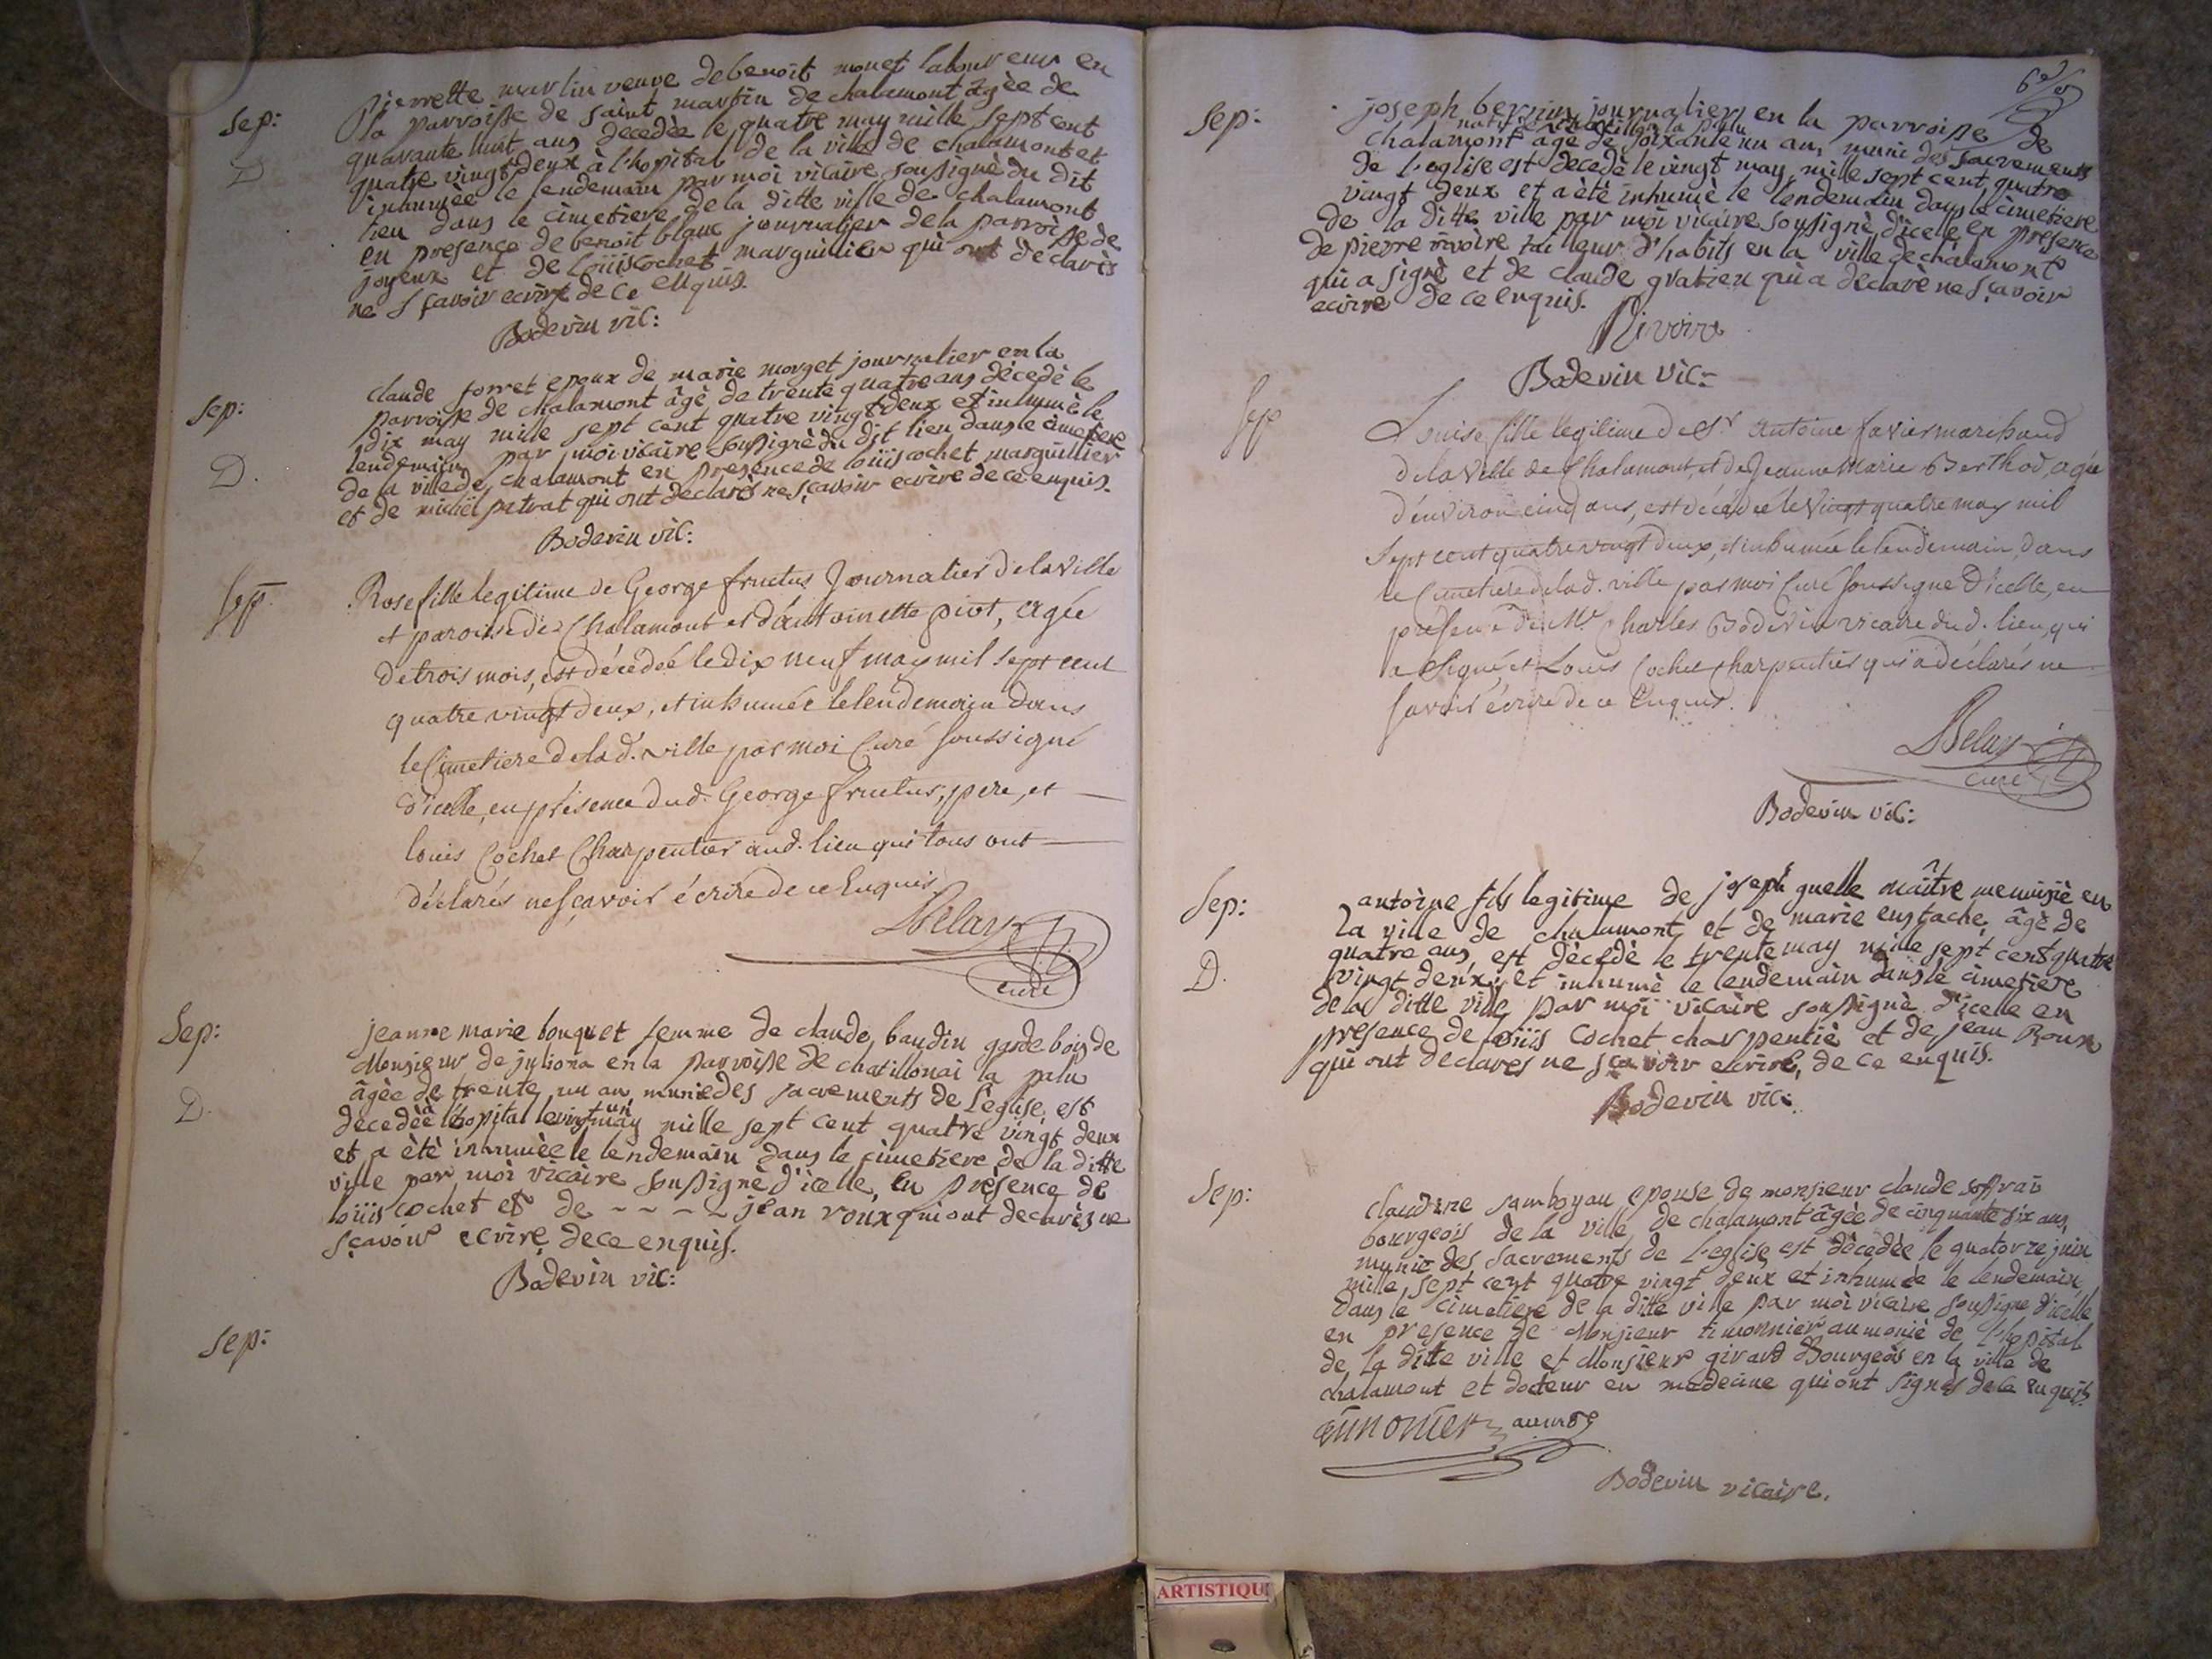 Sep:
D
Pierrette marlin veuve de benoit monet laboureur en
la parroisse de saint martin de chalamont âgèe de
quarante huit ans decedèe le quatre may mille sept cent
quatre vingt deux à l'hopital de la ville de chalamont et
inhumèe le lendemain par moi vicaire soussignè du dit
lieu dans le cimetiere de la ditte ville de chalamont
en presence de benoit blanc journalier de la parroisse de
joyeux et de loüis cochet marguillier qui ont dèclarès
ne sçavoir ecrire de ce enquis.
Bodevin vic:
Sep:
D.
claude forret epoux de marie morget journalier en la
parroisse de chalamont âgè de trente quatre ans dècedè le
dix may mille sept cent quatre vingt deux et inhumè le
lendemain par moi vicaire soussignè du dit lieu dans le cimetiere
de la ville de chalamont en presence de loüis cochet marguillier
et de michel patrat qui ont declarès ne sçavoir ecrire de ce enquis.
Bodevin vic:
Sep.
Rose fille legitime de George fructus Journalier de la ville
et paroisse de Chalamont et d'antoinette pivt, agée
de trois mois, est décédée le dix neuf may mil sept cent
quatre vingt deux, et inhumée le lendemain dans
le Cimetiere de lad. ville par moi Curé soussigné
d'icelle, en présence dud. George fructus, pere, et
louis Cochet Charpentier aud. lieu qui tous ont
déclarés ne sçavoir écrire de ce Enquis
Delay
curé
Sep:
D.
jeanne marie bouquet femme de claude baudin garde bois de
Monsieur de juliona en la parroisse de chatillonai la palu
âgèe de trente un an, munie des sacrements de l'eglise est
decedèe à l'hopital le vingt un may mille sept cent quatre vingt deux
et a ètè inhumèe le lendemain dans le cimetiere de la ditte
ville par moi vicaire soussignè d'icelle, en prèsence de
loüis cochet et de ~ ~ ~ ~ jean roux qui ont declarès ne
sçavoir ecrire de ce enquis.
Bodevin vic:
Sep:
Sep:
joseph berrin journalier en la parroisse de
natif de chatillon la palu
chalamont âgè de soixante un an, muni des sacrements
de l'eglise est decedè le vingt may mille sept cent quatre
vingt deux et a ètè inhumè le lendemain dans le cimetiere
de la ditte ville par moi vicaire soussignè d'icelle en presence
de pierre rivoire tailleur d'habits en la ville de chalamont
qui a signè et de claude gratien qui a declarè ne sçavoir
ecrire de ce enquis.
Rivoire
Bodevin vic:
Sep
Louise fille legitime de Sr. Antoine favier marchand
de la Ville de Chalamont, et de Jeanne Marie Berthod, agée
d'environ cinq ans, est décédée le Vingt quatre may mil
Sept cent quatre vingt deux, et inhumée le lendemain, dans
le Cimetiere de lad. ville par moi Curé soussigné d'icelle, en
présence de Mr. Charles Bodevin vicaire dud. lieu, qui
a Signé, et Louis Cochet charpentier qui a déclarés ne
savoir écrire de ce Enquis.
Delay
curé
Bodevin vic:
Sep:
D.
antoine fils legitime de joseph guelle maître menuisiè en
la ville de chalamont et de marie eustache, âgè de
quatre ans, est dècedè le trente may mille sept cent quatre
vingt deux, et inhumè le lendemain dans le cimetiere
de la ditte ville par moi vicaire soussignè d'icelle en
presence de loüis Cochet charpentiè et de jean Roux
qui ont declarès ne sçavoir ecrire, de ce enquis.
Bodevin vic:
Sep:
claudine samboyau epouse de monsieur claude soffrai
bourgeois de la ville de chalamont âgèe de cinquante six ans,
munie des sacrements de l'eglise est dècedèe le quatorze juin
mille sept cent quatre vingt deux et inhumèe le lendemain
dans le cimetiere de la ditte ville par moi vicaire soussignè d'icelle
en presence de Monsieur timonnier aumoniè de l'hopital
de la ditte ville et Monsieur girard Bourgeois en la ville de
chalamont et docteur en medecine qui ont signès de ce enquis.
timonier
Bodevin vicaire.
ARTISTIQU